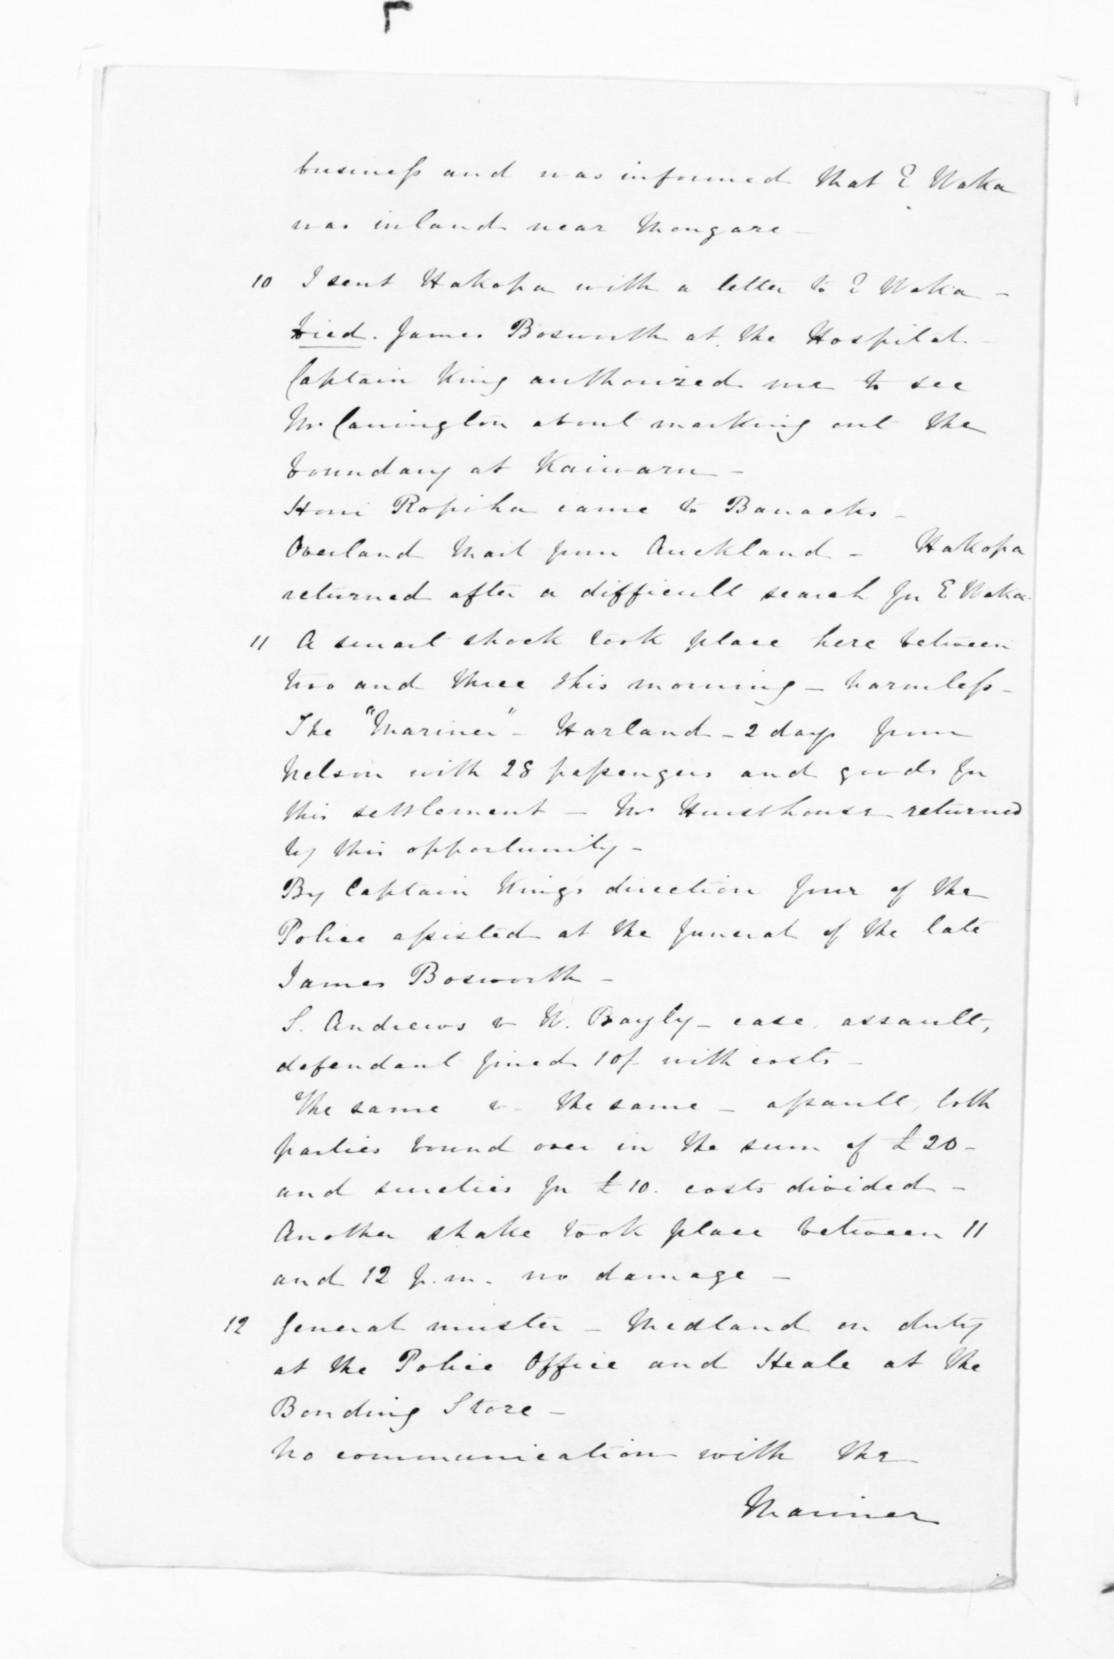 business and was informed that E Waka
was inland near Mongare -
10 I sent Hakopa with a letter to E Waka -
Died. James Bosworth at the Hospital -
Captain King authorized me to see
Mr Carrington about marking out the
boundary at Kaiwaru -
Honi Ropiha came to Barracks -
Overland Mail from Auckland - Hakopa
returned after a difficult search for E Waka.
11 A smart shock took place here between
two and three this morning - harmless -
The "Mariner" - Harland - 2 days from
Nelson with 28 passengers and goods for
this settlement - Mr Hursthouse returned
by this opportunity -
By Captain King's direction four of the
Police assisted at the funeral of the late
James Bosworth -
S. Andrews v W. Bayly - case, assault,
defendant fined 10/- with costs -
The same v. the same - assault, both
parties bound over in the sum of £20 -
and sureties for £10. costs divided -
Another shake took place between 11
and 12 p.m. no damage -
12 General muster - Medland on duty
at the Police Office and Heale at the
Bonding Store -
No communication with the
Mariner